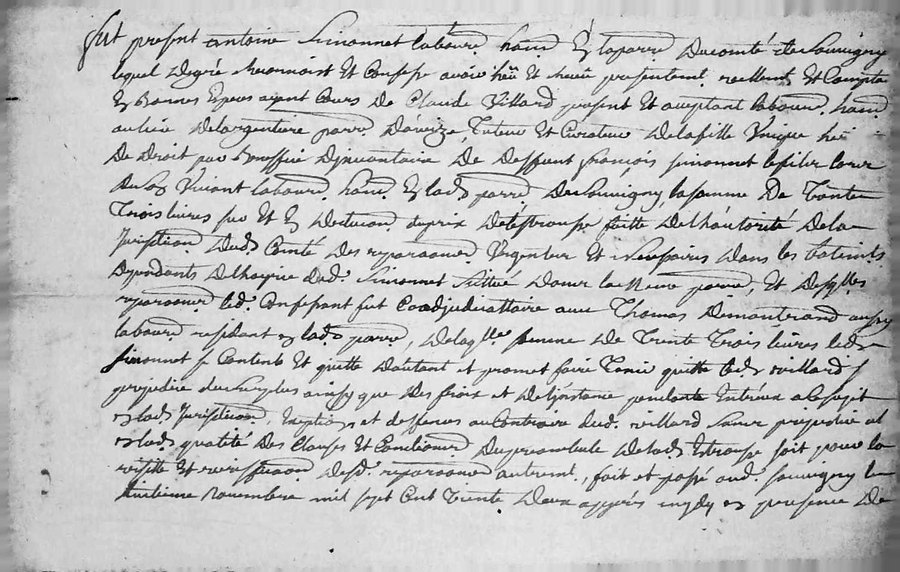 fut present antoine Simonnet laboure. habit. En laparre Du comté de Souvigny
lequel Degré Reconnoist Et Confesse avoir heu Et Receu presentemt. reellemt. Et Compta
En bonnes Especes ayant Cours De Claude Villard present Et aceptant laboure. habit.
au lieu Delargentiere parr. Tuteur Et Curateur Delafille Unique
De Droit par Benefice Dinvantaire De Deffunt françois Simonnet
Vivant laboure. habit. En lad. parre. De Souvigny, la somme De Trente
Trois livres Et En Deduction du prix Deletrousse faitte Delhautorité Dela
Jurisdiction Dud. Comté Des reparaons. Urgentes Et Necessaires Dans les batimts.
Dependants Delhoyrie Dud. Simonnet Scittué Dans la parre, Et Desqlles.
reparaons. led. Confessant fut Coadjudicattaire avec Thomas Demontrand aussy
laboure. residant en lad. parre, Delaqlle. somme De Trente Trois livres led.
Simonnet se Contente Et quitte Dautant et promet faire Tenir quitte led. villard
prejudice du surplus ainsy que Des frois et Delinstane pendante Entreux a le sujet
en lad. Jurisdiction, Exeptions et deffences au Contraire dud. villard Sans prejudice
en lad. qualité Des Clauses Et Conditions Du preambule Delad. Etrousse soit pour la
visitte Et Desd. reparaons. autremt., fait et passé aud. Souvigny le
huitieme Novembre mil sept Cent Trente Deux apprés mydy en presence De